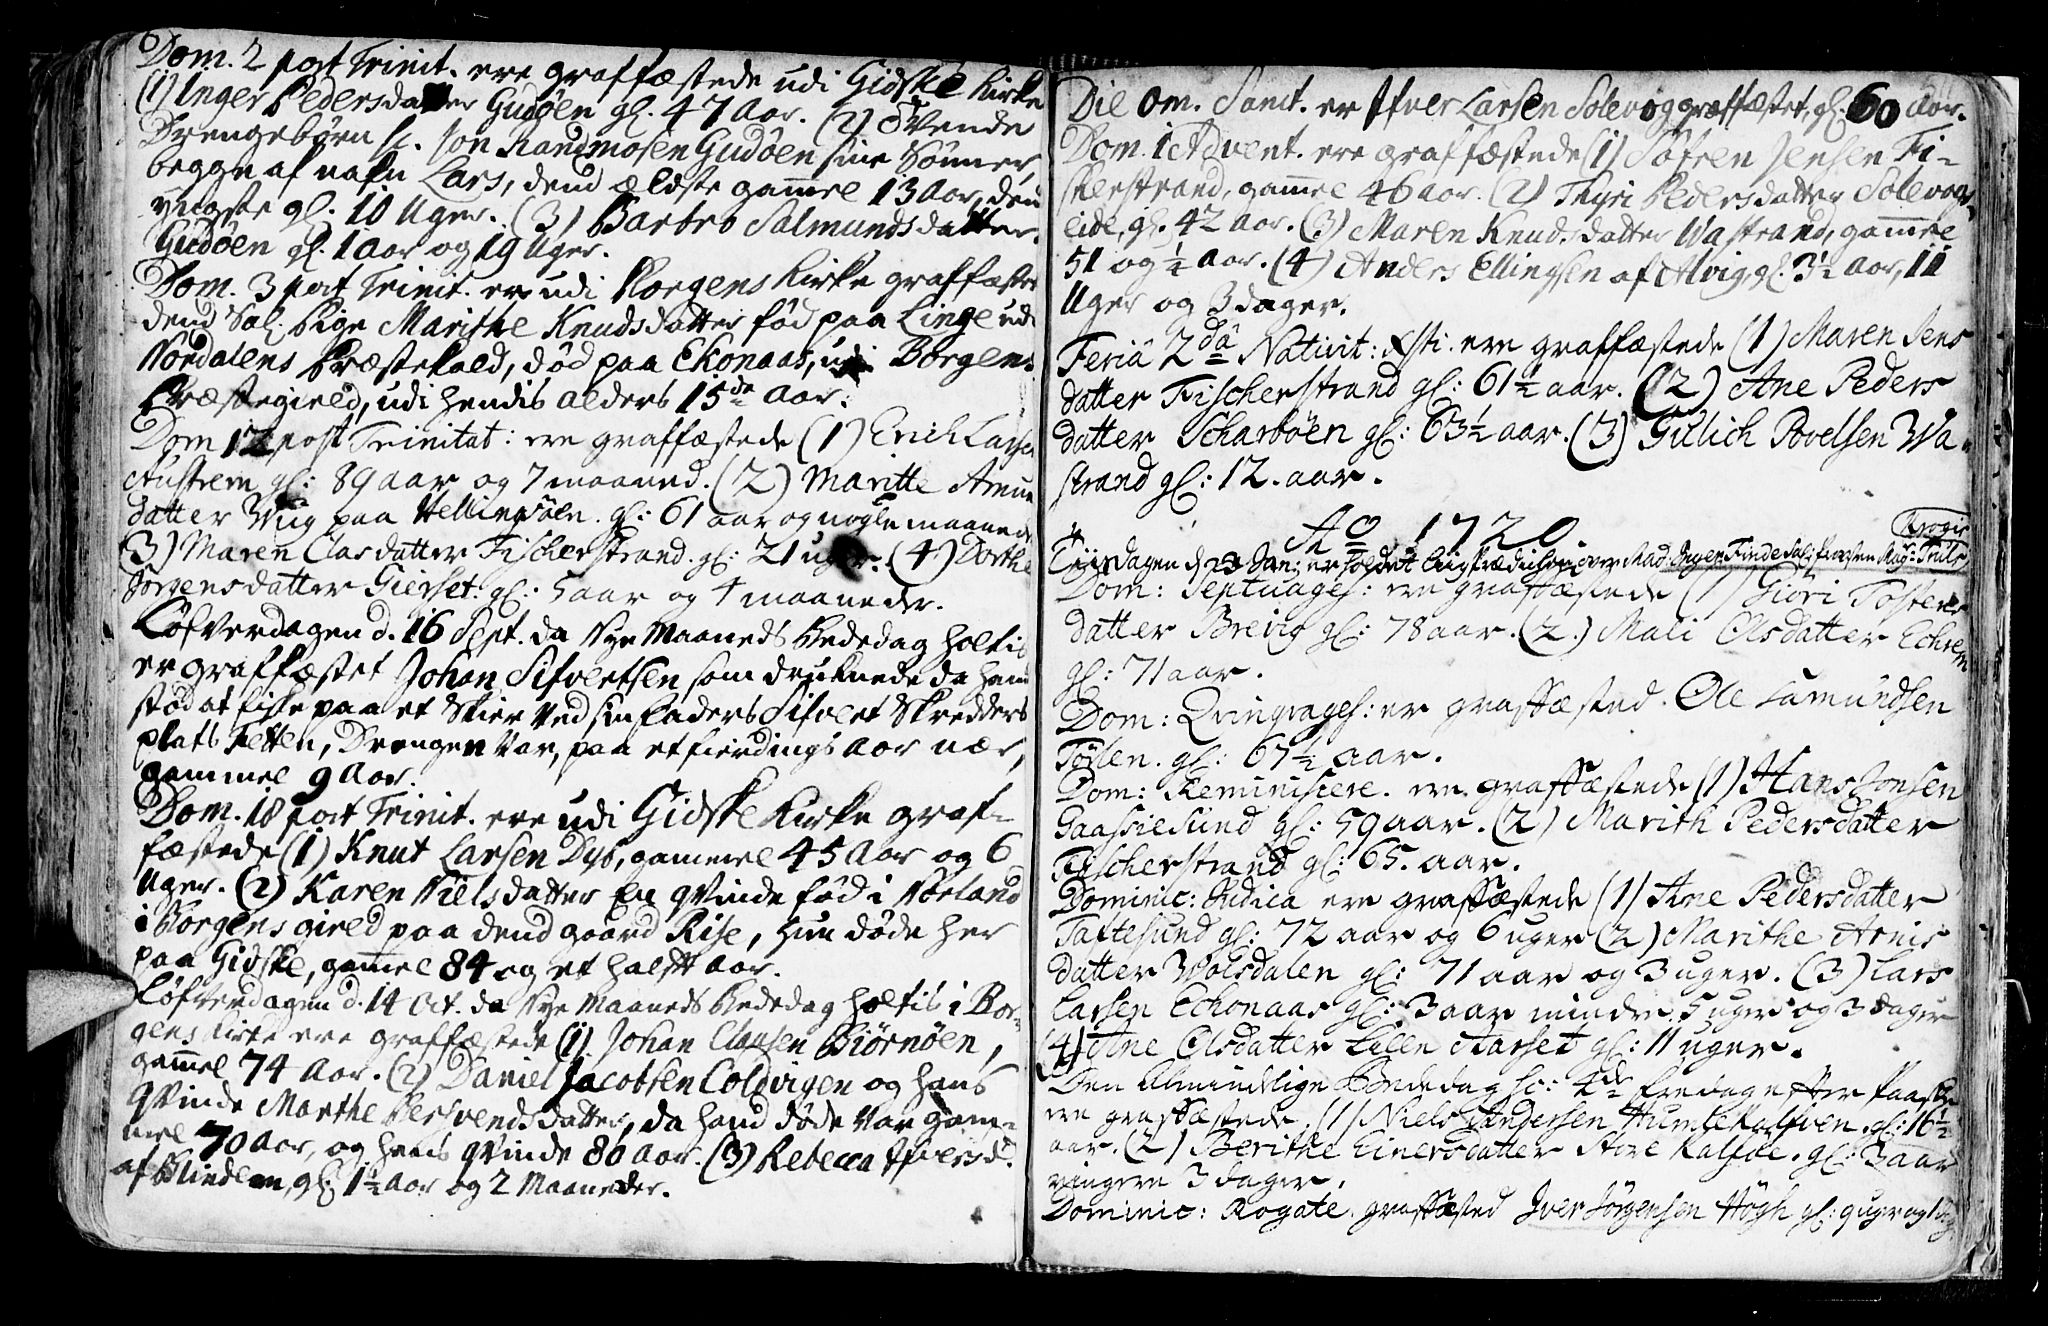 Dom. 2 post Trinit. ere graffæstede udi Gidske Kirke
(1) Inger Pedersdatter Gudøen gl. 47 Aar. (2) Tvende
Drengebørn sc. Jon Randmosen Gudøen sine Sønner,
begge af nafn Lars, dend ældste gammel 13 Aar, dend
yngste gl. 10 Uger. (3) Barbro Salmundsdatter
Gudøen gl. 1 aar og 19 Uger.
Dom. 3 post Trinit. ere udi Borgens Kirke graffæstet
dend Sal. Pige Marithe Knudsdatter fød paa Linge udi
Nordalens Præstekald, død paa Ekonaas, udi Borgens
Præstegield, udi hendis alders 15de Aar.
Dom 12 post Trinitat: ere graffæstede (1) Erich Larsen
Austrem gl: 89 aar og 7 maaned. (2) Maritte Amun
datter Wiig paa Hellingsøen. gl: 61 aar og nogle maaneder
3) Maren Clasdatter Fischerstrand. gl: 21 uger. (4) Dorthe
Jørgensdatter Gierset: gl: 5 aar og 4 maaneder.
Løfverdagen d. 16 Sept. da Nye Maaneds Bededag holtis
er graffæstet Johan Sifvertsen som druknede da hand
stod at fiske paa et Skier ved sin faders Sifvert Skredders
plats Fetten, Drengen var, paa et fierdings aar nær,
gammel 9 Aar.
Dom. 18 post Trinit. ere udi Gidske Kirke graf-
fæstede (1) Knut Larsen Dyb, gammel 45 Aar og 6
Uger. (2) Karen Nielsdatter En qvinde fød i Norland
i Borgens gield paa dend gaard Rise, hun døde her
paa Gidske, gammel 84 og et halft aar.
Løfverdagen d. 14 Oct. da Nye Maaneds Bededag holtis i Bor-
gens Kirke ere graffæstede (1) Johan Clausen Biørnøen,
gammel 74 Aar. (2) Daniel Jacobsen Coldvigen og hans
Qvinde Marthe datter, da hand døde var gam-
mel 70 Aar, og hans Qvinde 80 Aar. (3) Rebecca Ifversd.
af Blindem, gl. 1½ Aar og 2 Maaneder.
Die Om. Sanct. er Ifver Larsen Solevog græffæstet, gl. 60 Aar.
Dom. 1 Advent. ere graffæstede (1) Søfren Jensen Fi-
skerstrand, gammel 46 aar. (2) Thyri Pedersdatter Solevogs-
eide, gl. 42 aar. (3) Maren Knudsdatter Wastrand, gammel
51 og ½ Aar. (4) Anders Ellingsen af Alvig, gl. 3½ Aar, 11
Uger og 3 dager.
Feriâ 2dâ Nativit: Xsti. ere graffæstede (1) Maren Jens
datter Fischerstrand gl: 61½ aar. (2) Ane Peders
datter Scharbøen gl: 63½ aar. (3) Gulich Povelsen Wa-
strand gl: 12. aar.
Ao 1720.
Tiirsdagen d 23 Jan: er holdet Liigprædichen over Mad. Inger Finde Sal:
Dom: Septuages: ere graffæstede (1) Giøri Tosten
datter Brevig gl: 78 aar. (2.) Mali Olsdatter Echrem
gl: 71 aar.
Dom: Qvinqvages: er graffæsted. Ole Samundsen
Tøssen. gl: 67½ aar.
Dom: Reminiscere. ere graffæstede (1) Hans Jonsen
Gaassiesund gl: 59 aar. (2) Marith Pedersdatter
Fischerstrand gl: 65. aar.
Dominic: Judica ere graffæstede (1) Ane Pedersdatter
Taftesund gl: 72 aar og 6 uger (2) Marithe Arnis
datter Wolsdalen gl: 71 aar og 3 uger. (3) Lars
Larsen Echonaas gl: 3 aar mindre 5 uger og 3 dager
(4) Ane Olsdatter Lilen Aarset gl: 11 uger.
Den Almindelige Bededag sc: 4de fredag efter Paaske
ere graffæstede. (1) Niels Andersen Humlekalfven. gl: 16½
aar. (2) Berithe Einersdatter Store Kalføe. gl: 3 aar
ringere 3 dager.
Dominic: Rogate. graffæsted Iver Jørgensen Høgh gl: 9 uger og 1 dag